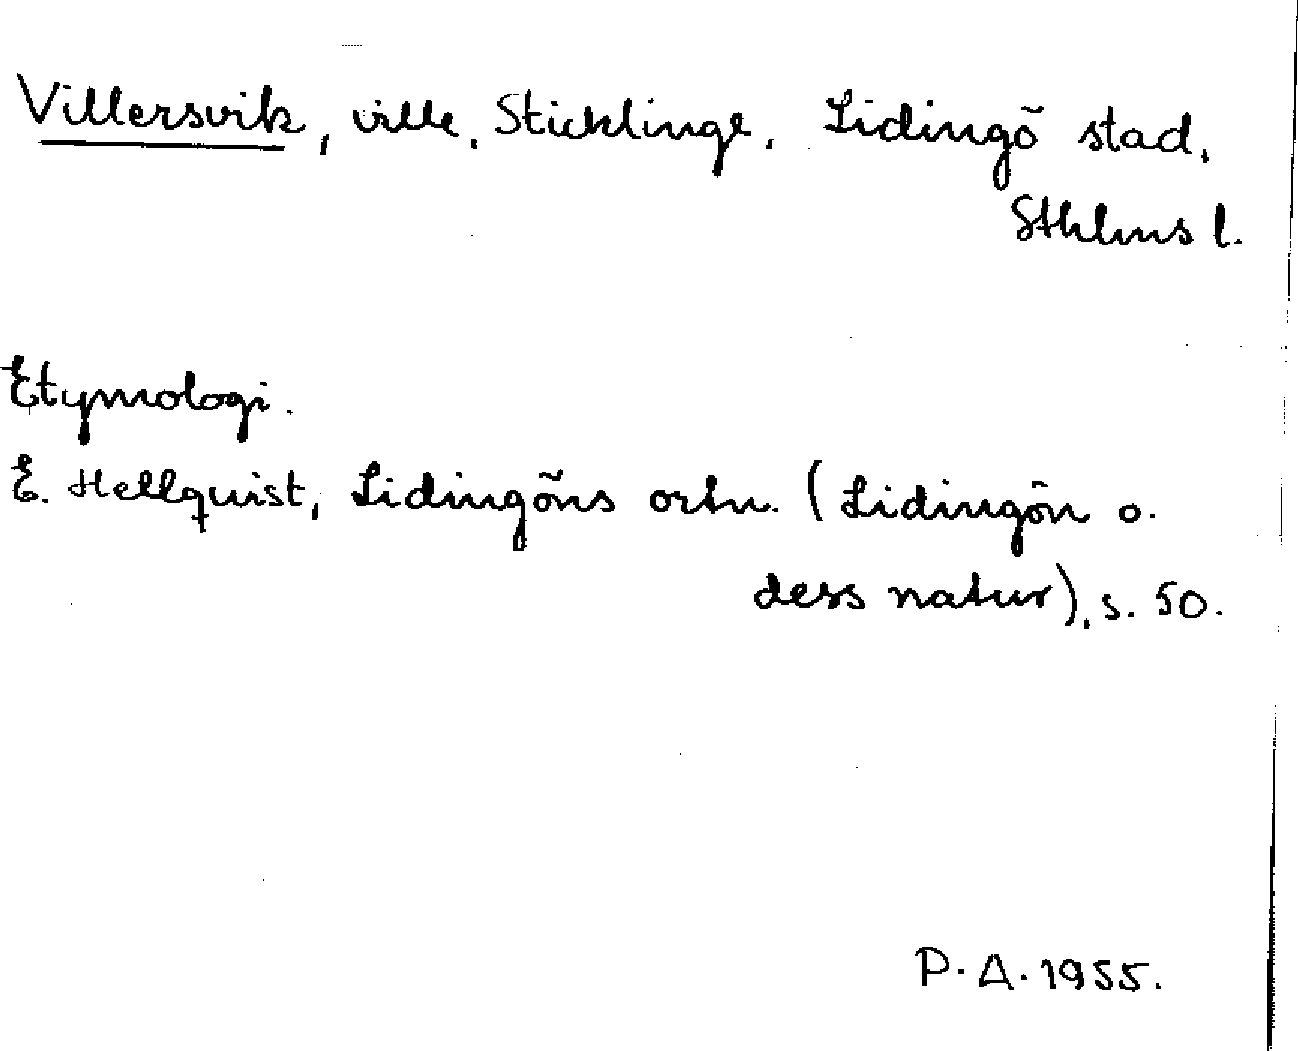 Villersvik, villa, Sticklinge, Lidingö stad,
Sthlms l.
Etymologi.
E. Hellquist, Lidingöns ortn. (Lidingön o.
dess natur), s. 50.
P. A. 1955.